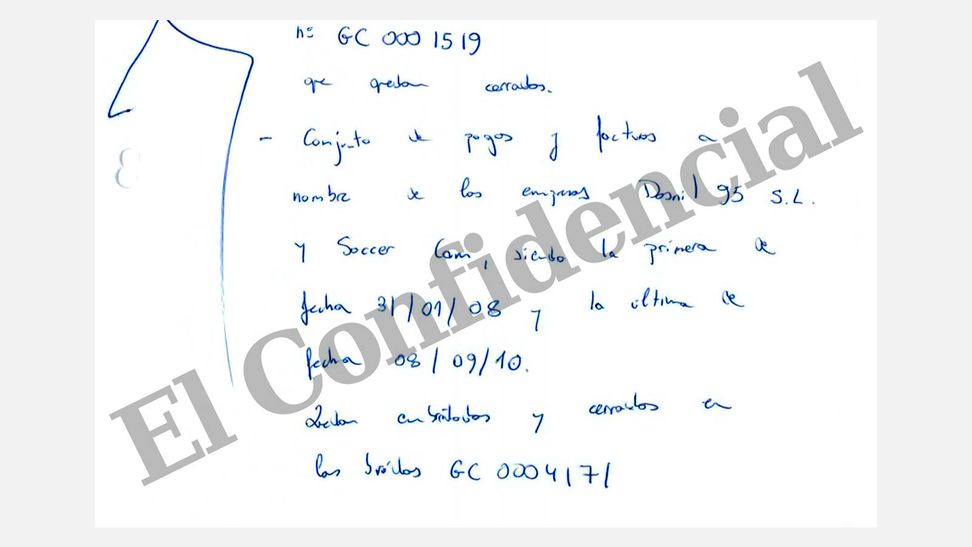 nº GC 0001519
que quedan cerrados.
- Conjunto de pagos y facturas a
nombre de las empresas Dasnil 95 S.L.
y Soccer Cam, siendo la primera de
fecha 31/01/08 y la última de
fecha 08/09/10.
Quedan embridados y cerrados en
las bridas GC 0004171
El Confidencial